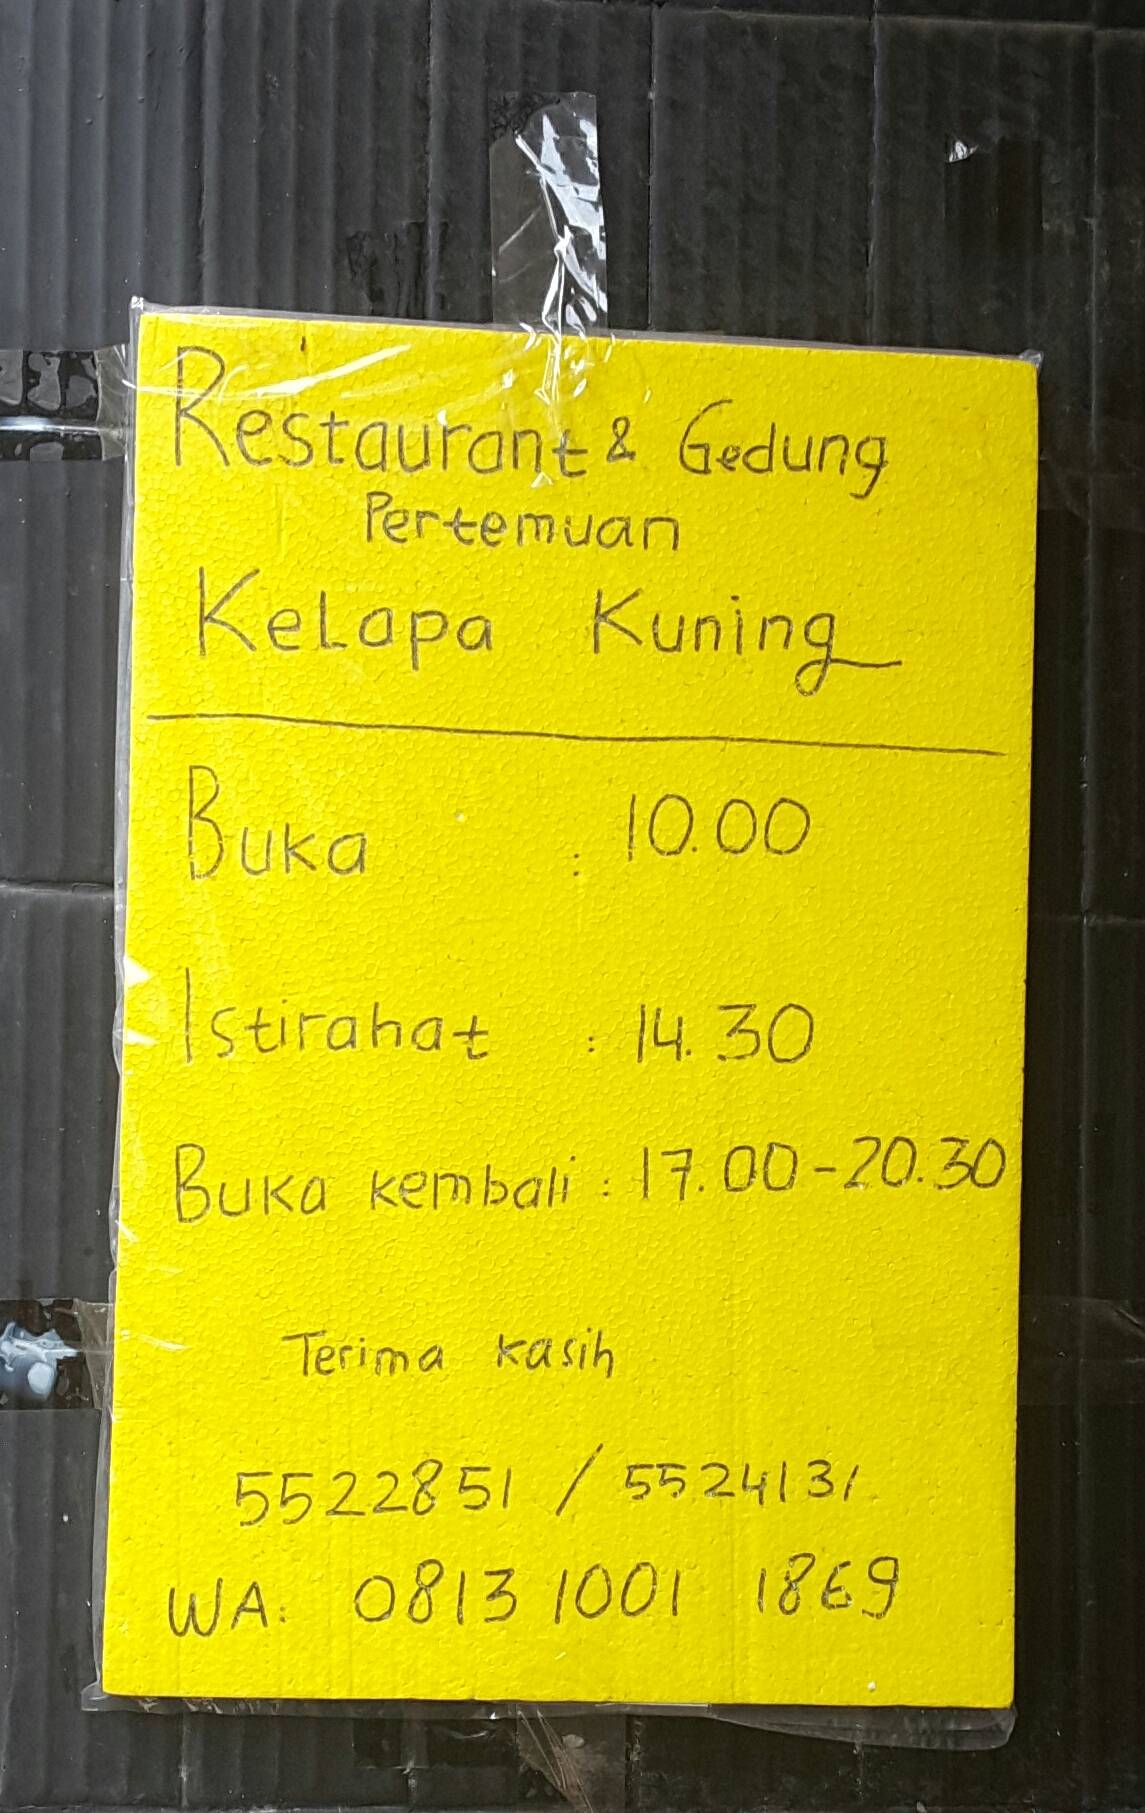 Restaurant & Gedung
Pertemuan
Kelapa Kuning
Buka : 10.00
Istirahat : 14.30
Buka kembali : 17.00-20.30
Terima kasih
5522851 / 5524131
WA: 0813 1001 1869